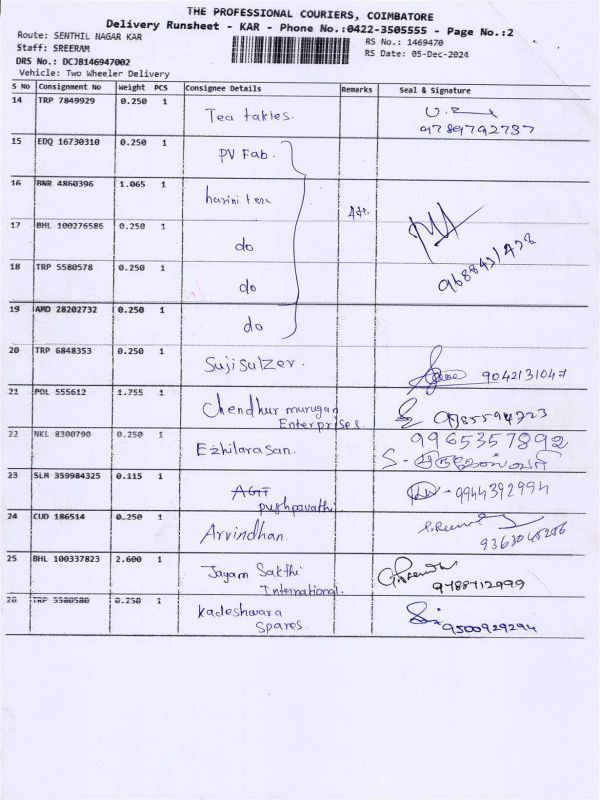 THE PROFESSIONAL COURIERS, COIMBATORE
Delivery Runsheet - KAR - Phone No.:0422-3505555 - Page No.:2
Route: SENTHIL NAGAR KAR
Staff: SREERAM
DRS No.: DCJB146947002
Vehicle: Two Wheeler Delivery
RS No.: 1469470
RS Date: 05-Dec-2024
S No Consignment No Weight PCS Consignee Details Remarks Seal & Signature
14 TRP 7849929 0.250 1 Tea takies. 9789792737
15 EDQ 16730310 0.250 1 PV Fab.
16 BNR 4860396 1.065 1 harini tex
17 BHL 100276586 0.250 1 do
18 TRP 5580578 0.250 1 do
19 AMD 28202732 0.250 1 do
20 TRP 6848353 0.250 1 Sujisulzer. 9042131047
21 POL 555612 1.755 1 Chendhur murugan
Enterprises.
22 NKL 8300790 0.250 1 Ezhilarasan. 9965357892
23 SLM 359984325 0.115 1 AGT
pushpavathi 9944392994
24 CUD 186514 0.250 1 Arvindhan.
25 BHL 100337823 2.600 1 Jayam Sakthi
International. 9788712999
26 TRP 5580580 0.250 1 Kadeshwara
Spares. 9500929294